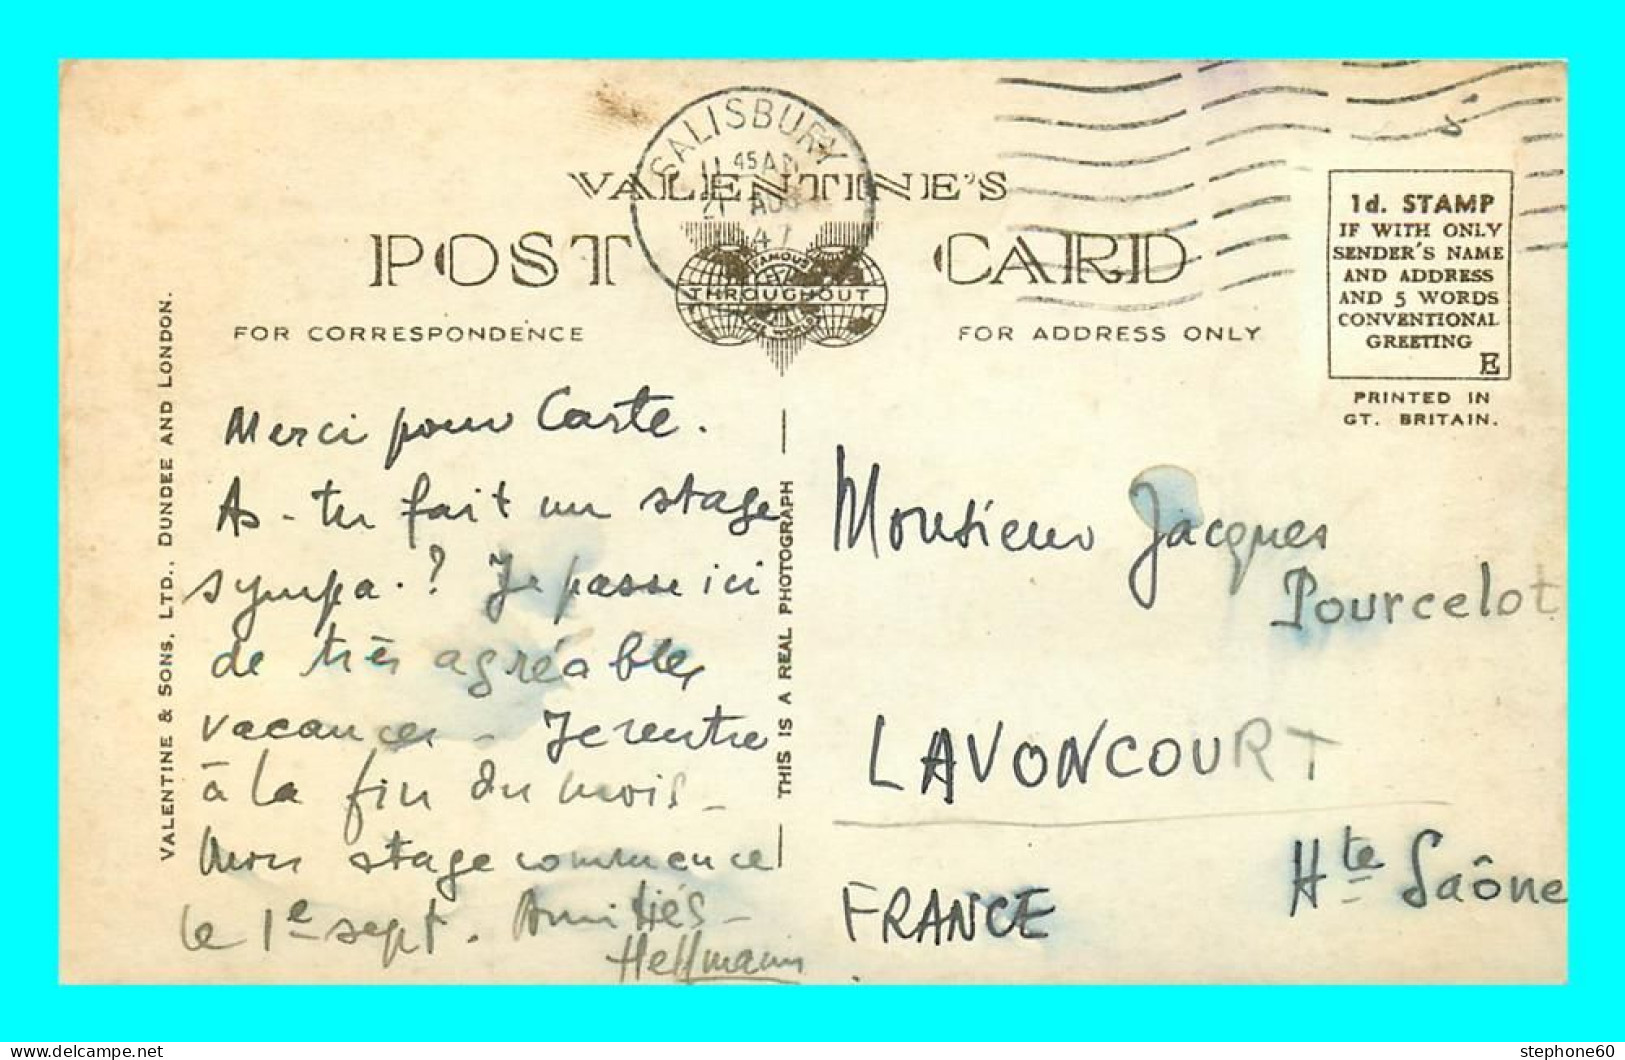 SALISBURY
11 45 A
21 AUG
47
VALENTINE'S
POST CARD
FAMOUS
THROUGHOUT
THE WORLD
FOR CORRESPONDENCE
FOR ADDRESS ONLY
1d. STAMP
IF WITH ONLY
SENDER'S NAME
AND ADDRESS
AND 5 WORDS
CONVENTIONAL
GREETING
E
PRINTED IN
GT. BRITAIN.
VALENTINE & SONS, LTD., DUNDEE AND LONDON.
THIS IS A REAL PHOTOGRAPH
Merci pour Carte.
As-tu fait un stage
sympa.? Je passe ici
de très agréables
vacances - Je rentre
à la fin du mois -
Mon stage commence
le 1e sept. Amitiés -
Hellmann
Monsieur Jacques
Pourcelot
LAVONCOURT
Hte Saône
FRANCE
stephone60